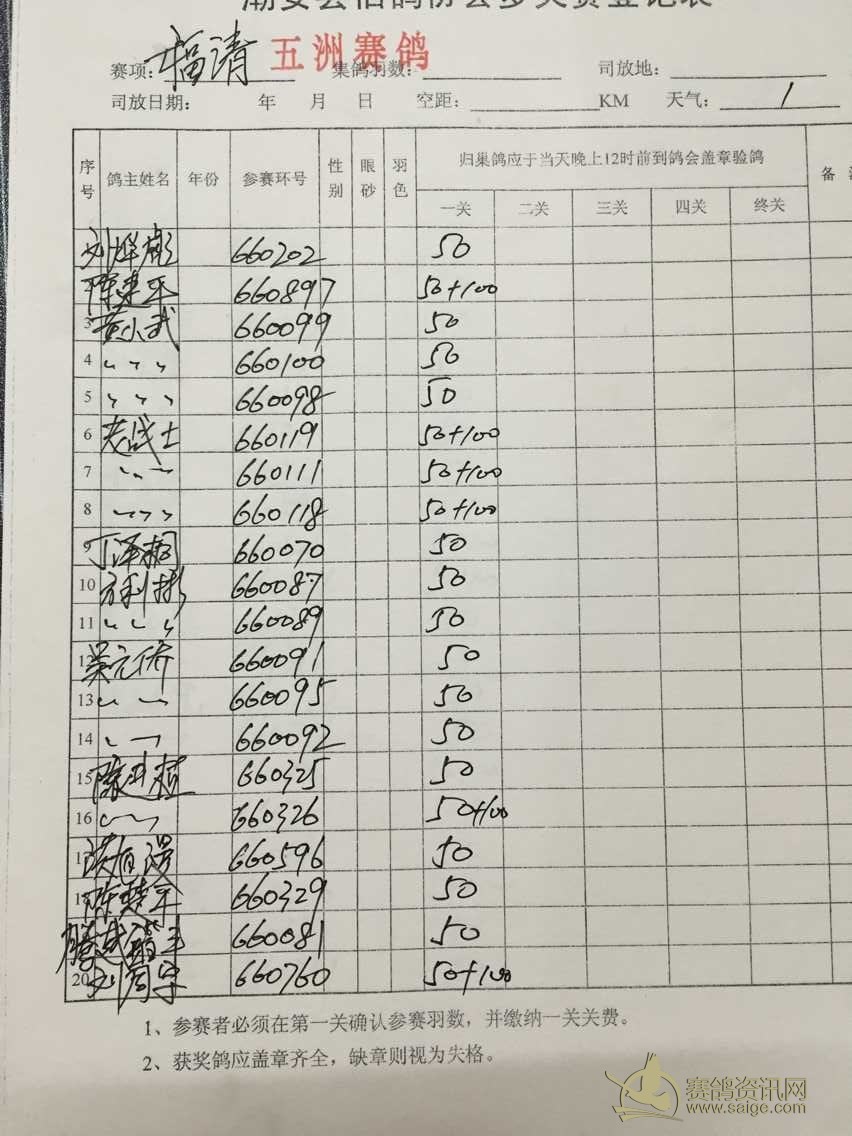 潮安县信鸽协会多关赛登记表
五洲赛鸽
赛项：福清 集鸽羽数： 司放地：
司放日期： 年 月 日 空距： KM 天气：
序号 鸽主姓名 年份 参赛环号 性别 眼砂 羽色 归巢鸽应于当天晚上12时前到鸽会盖章验鸽 备
一关 二关 三关 四关 终关
660202 50
660897 50+100
3 黄小武 660099 50
4 〃 〃 〃 660100 50
5 〃 〃 〃 660098 50
6 老战士 660119 50+100
7 〃 〃 660111 50+100
8 〃 〃 〃 660118 50+100
9 丁泽桐 660070 50
10 方利彬 660087 50
11 〃 〃 〃 660089 50
12 吴元侨 660091 50
13 〃 〃 660095 50
14 〃 〃 660092 50
15 660325 50
16 〃 〃 660326 50+100
17 660596 50
18 陈楚平 660329 50
660081 50
20 660760 50+100
1、参赛者必须在第一关确认参赛羽数，并缴纳一关关费。
2、获奖鸽应盖章齐全，缺章则视为失格。
赛鸽资讯网
www.saige.com